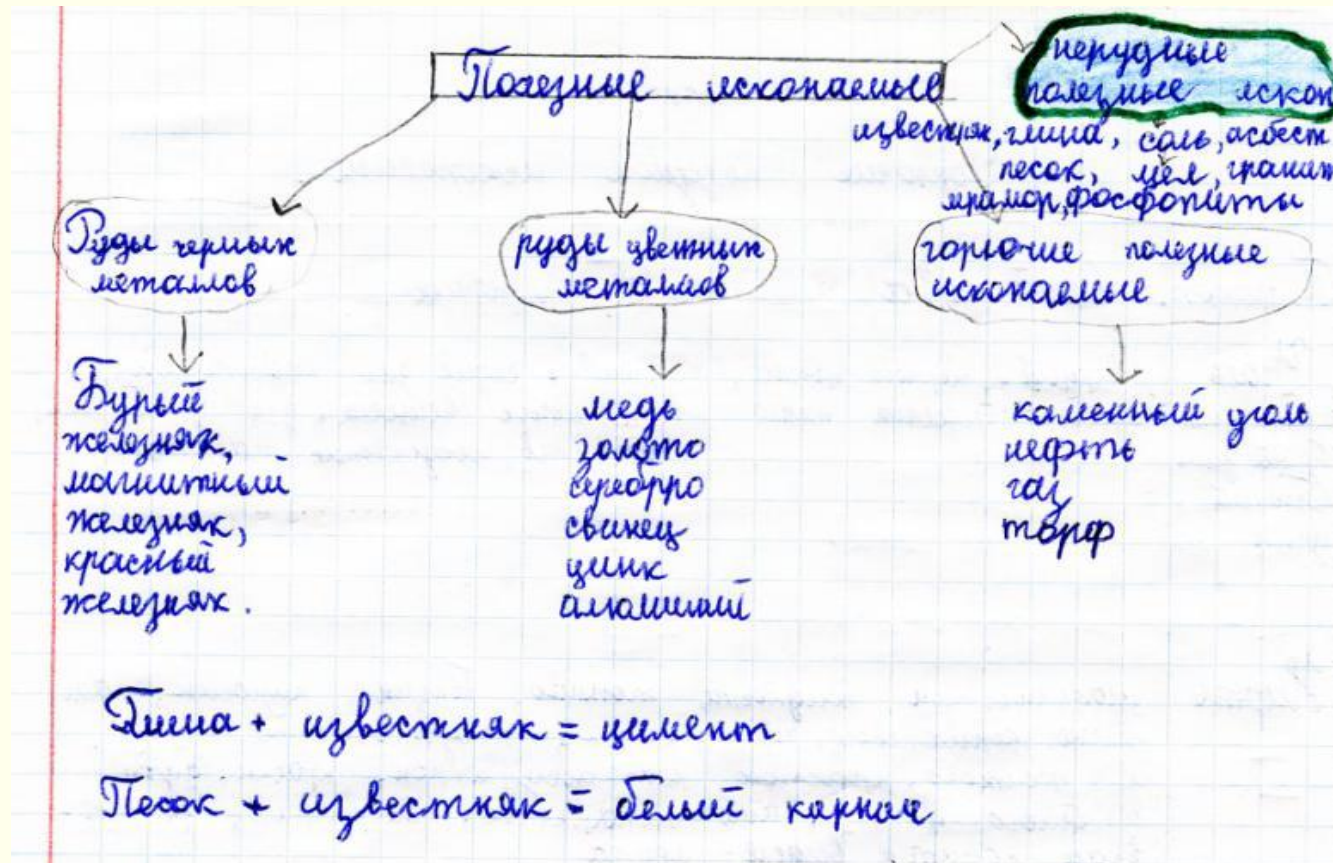 Полезные ископаемые
нерудные
полезные ископ
известняк, глина, соль, асбест
песок, мел, гранит
мрамор, фосфориты
Руды черных
металлов
руды цветных
металлов
горючие полезные
ископаемые
Бурый
железняк,
магнитный
железняк,
красный
железняк.
медь
золото
серебрро
свинец
цинк
алюминий
каменный уголь
нефть
газ
торф
Глина + известняк = цимент
Песок + известняк = белый